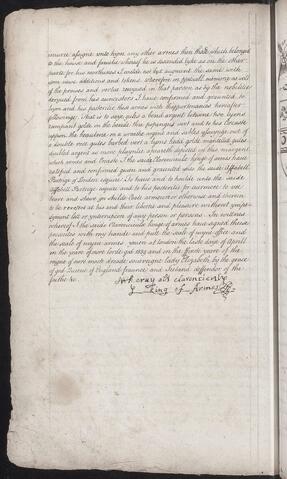 unwise assigne unto hym any other armes then those which belonged
to the house and familie whereof he is discended lyke as on the other
parte for his worthines I could not but augment the same with
som newe additions and tokens wherefore in especiall memory as well
of the prowes and vertue remayned in that parson as by the nobilitie
deryved from his auncesters I have confirmed and graunted to
hym and to his posteritie this armes with thappurtenances hereafter
followinge. That is to saye gules a bend argent betwene two lyons
rampant golde in the honde
uppon the healme on a wreathe argent and sables yssuinge out of
a double rose gules barbed vert a lyons head golde mantelled gules
doubled argent as more playnelie apeareth depicted in this margent
which armes and Creaste I the saide Clarencieulx kinge of armes have
ratified and confirmed geven and graunted unto the saide
of London esquier To have and to houlde unto the saide
esquier and to his posteritie for evermore to use
beare and shewe in shilde Coate armour or otherwise and therein
to be revested at his and their libertie and pleasure without ympedi
yment lett or ynterruption of any person or persons. In witness
whereof I the saide Clarencieulx kinge of armes have signed these
presentes with my hande and put the seale of myne office and
the seale of myne armes yeven at london the laste daye of Aprill
in the yeare of owre lorde god 1559 and in the firste yeare of the
reigne of owre moste dreade soveraigne lady Elizabeth by the grace
of god Quene of England fraunce and Ireland deffendor of the
faithe &c.
W Heruy als clarencieulx
King of Armes